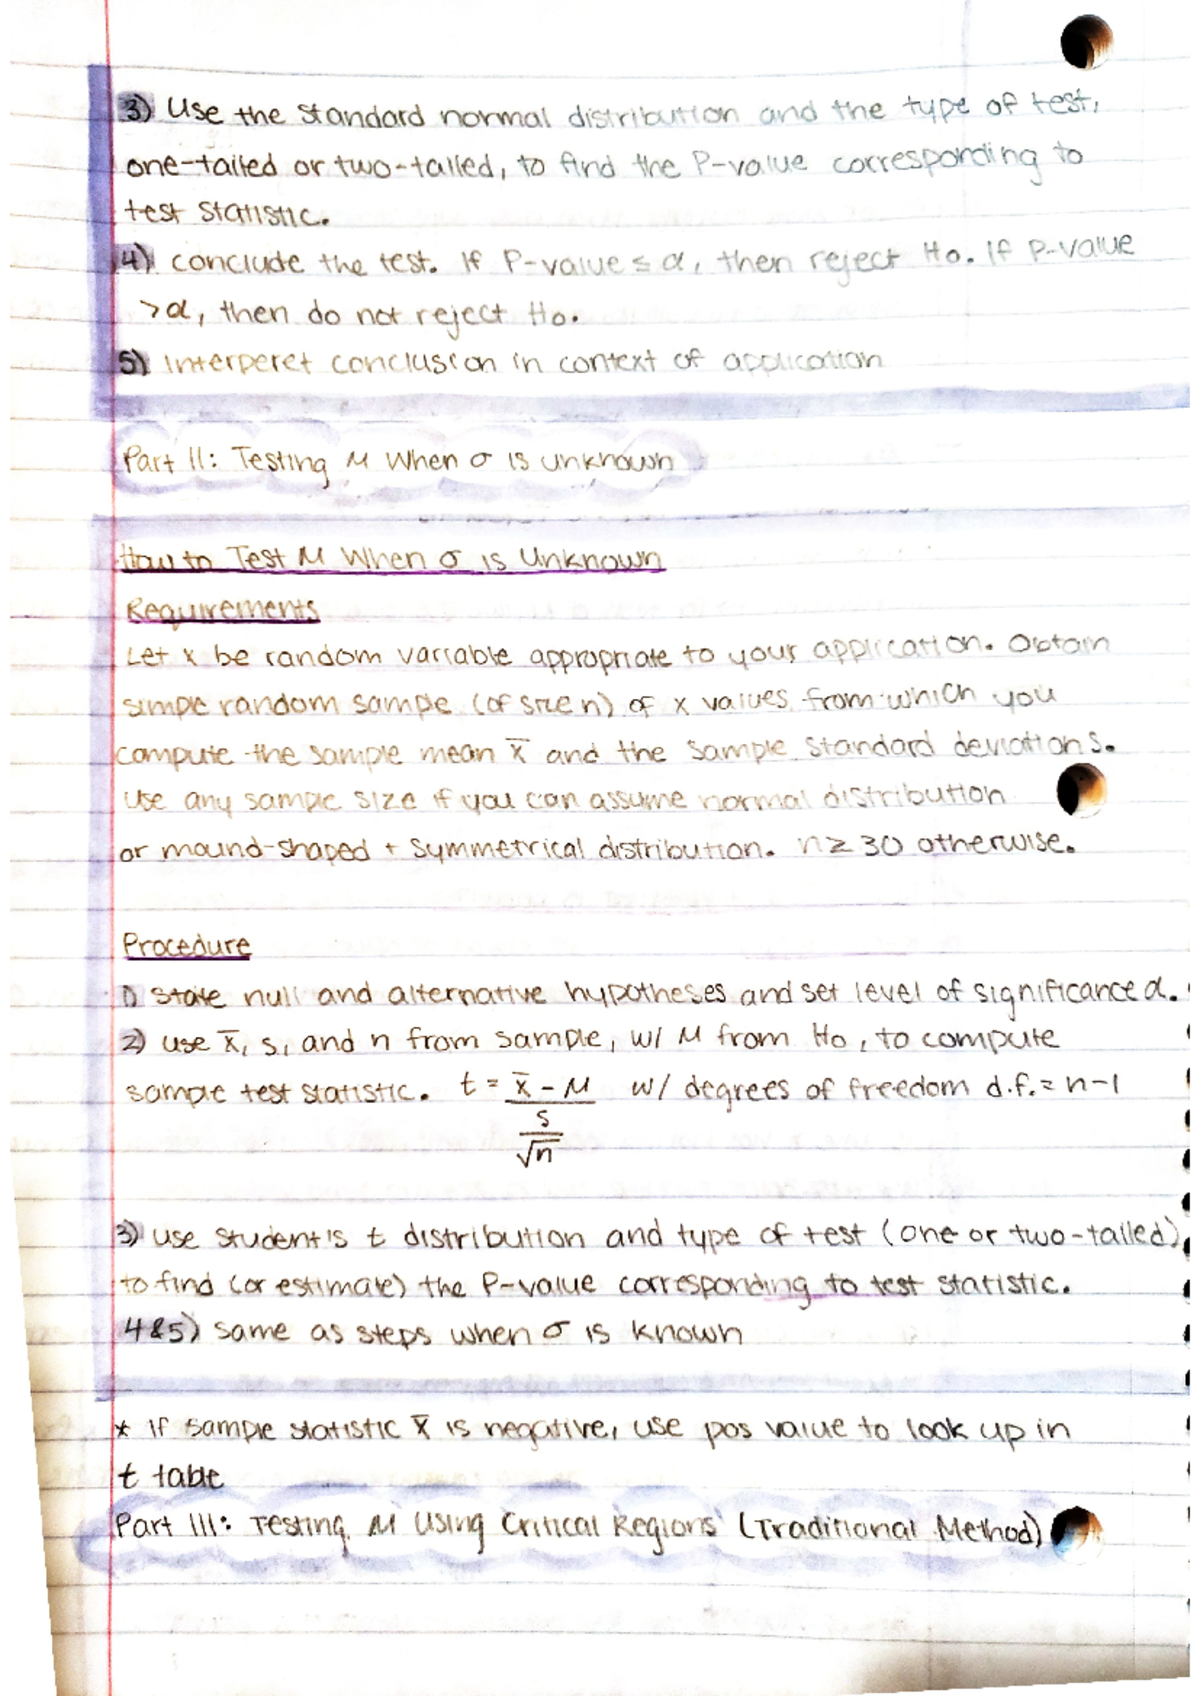 3) Use the standard normal distribution and the type of test,
one-tailed or two-tailed, to find the P-value corresponding to
test statistic.
4) conclude the test. If P-value ≤ α, then reject Ho. If P-value
> α, then do not reject Ho.
5) Interperet conclusion in context of application
Part II: Testing μ When σ is unknown
How to Test μ When σ is Unknown
Requirements
Let x be random variable appropriate to your application. Obtain
simple random sample (of size n) of x values from which you
compute the sample mean x̅ and the sample standard deviation s.
Use any sample size if you can assume normal distribution
or mound-shaped + symmetrical distribution. n ≥ 30 otherwise.
Procedure
1) State null and alternative hypotheses and set level of significance α.
2) use x̅, s, and n from sample, w/ μ from Ho, to compute
sample test statistic. t = x̅ - μ w/ degrees of freedom d.f. = n-1
s
√n
3) use student's t distribution and type of test (one or two-tailed)
to find (or estimate) the P-value corresponding to test statistic.
4&5) same as steps when σ is known
* if sample statistic x̅ is negative, use pos value to look up in
t table
Part III: Testing μ Using Critical Regions (Traditional Method)